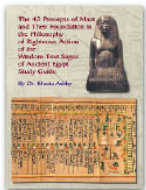 The 42 Precepts of Maat
and Their Foundation in
the Philosophy
of Righteous Action
of the
Wisdom Text Sages
of Ancient Egypt
Study Guide
By Dr. Muata Ashby